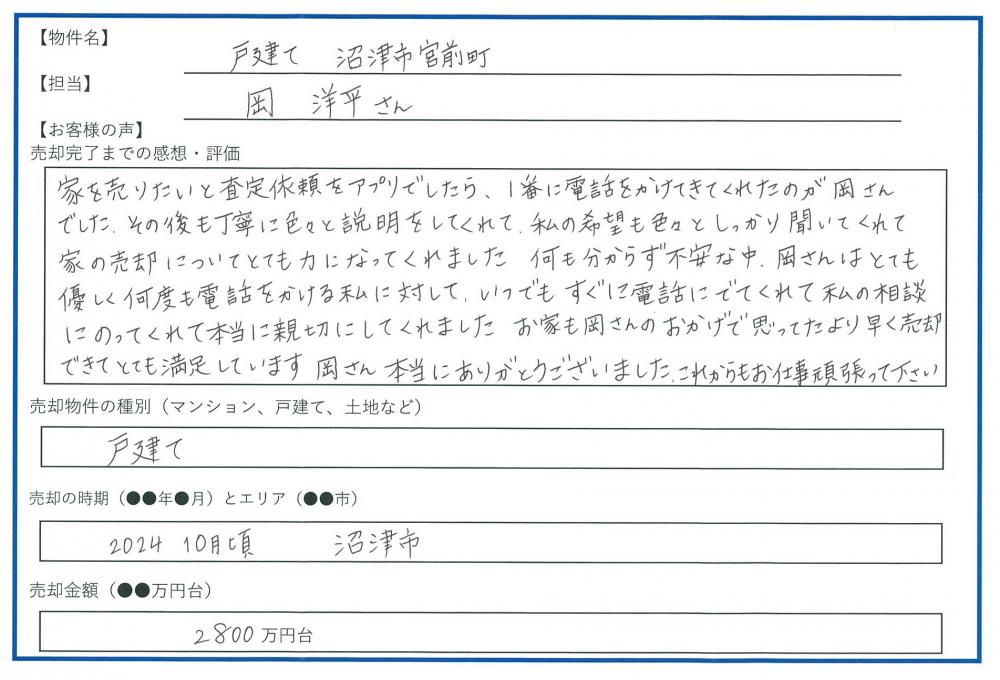 【物件名】
戸建て 沼津市宮前町
【担当】
岡 洋平さん
【お客様の声】
売却完了までの感想・評価
家を売りたいと査定依頼をアプリでしたら、1番に電話をかけてきてくれたのが岡さん
でした。その後も丁寧に色々と説明をしてくれて、私の希望も色々としっかり聞いてくれて
家の売却についてとても力になってくれました 何も分からず不安な中、岡さんはとても
優しく何度も電話をかける私に対して、いつでもすぐに電話にでてくれて私の相談
にのってくれて本当に親切にしてくれました お家も岡さんのおかげで思ってたより早く売却
できてとても満足しています 岡さん本当にありがとうございました。これからもお仕事頑張って下さい
売却物件の種別（マンション、戸建て、土地など）
戸建て
売却の時期（●●年●月）とエリア（●●市）
2024 10月頃 沼津市
売却金額（●●万円台）
2800万円台